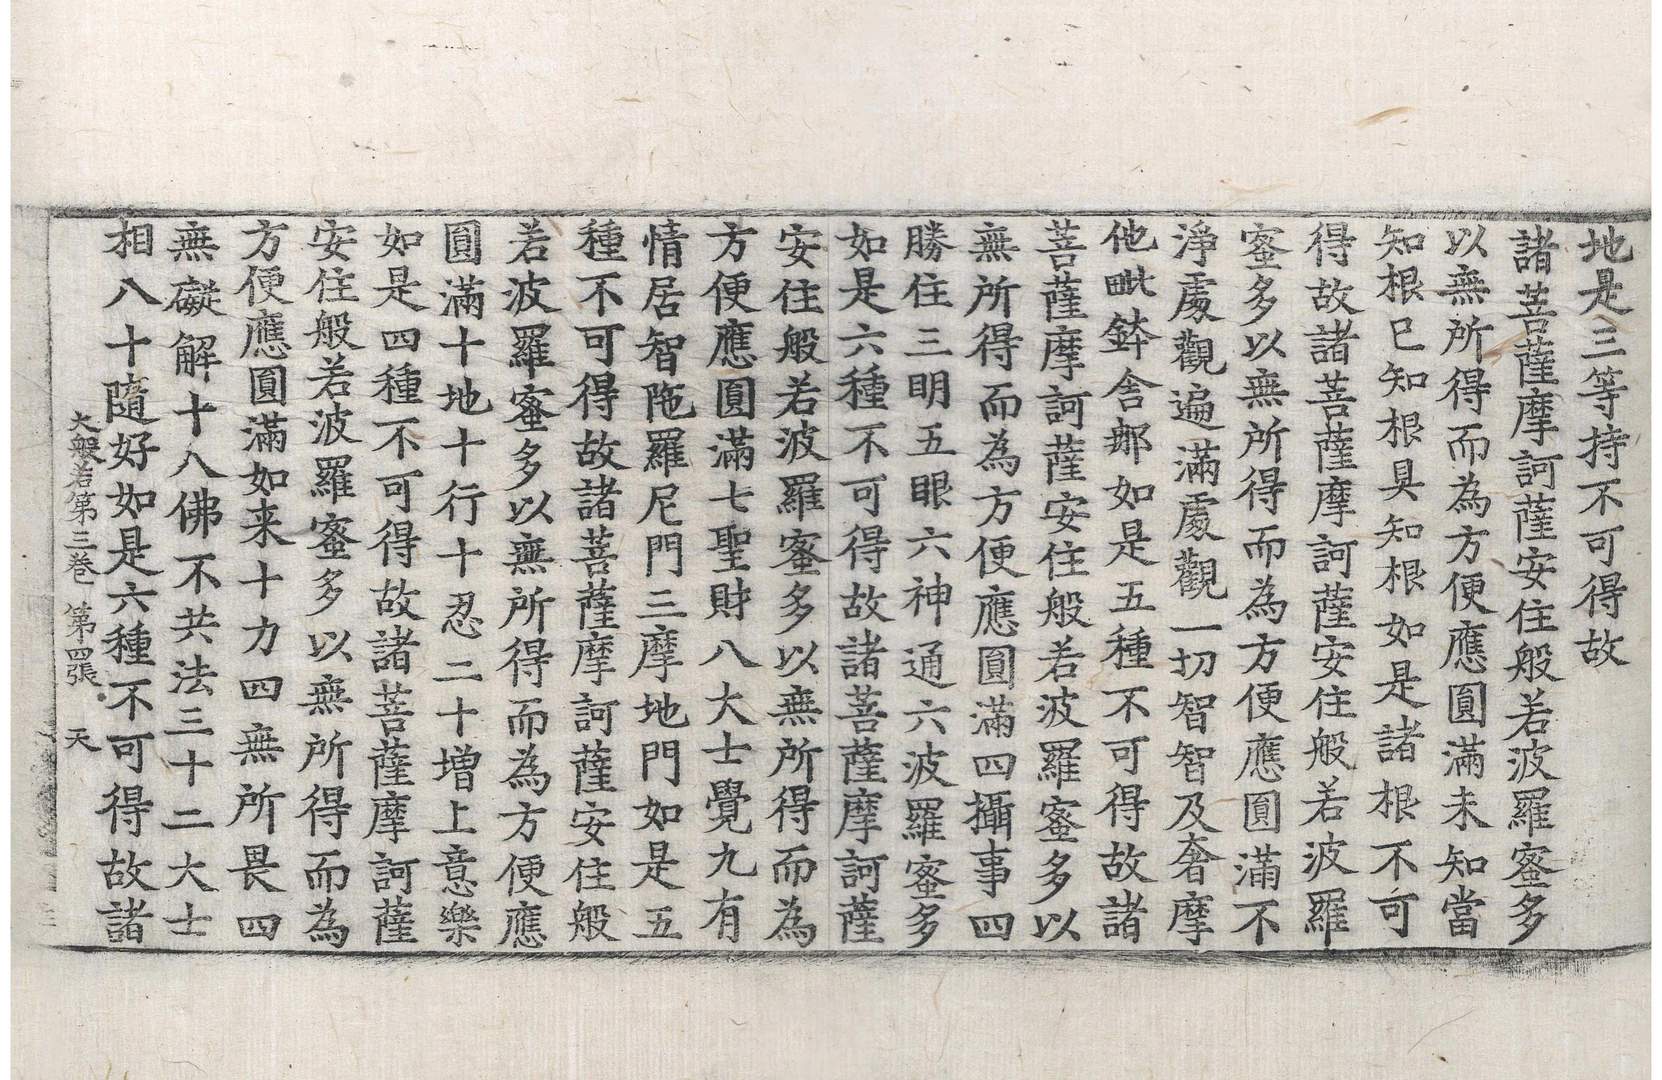 地是三等持不可得故
諸菩薩摩訶薩安住般若波羅蜜多
以無所得而為方便應圓滿未知當
知根已知根具知根如是諸根不可
得故諸菩薩摩訶薩安住般若波羅
蜜多以無所得而為方便應圓滿不
淨處觀遍滿處觀一切智智及奢摩
他毗鉢舍那如是五種不可得故諸
菩薩摩訶薩安住般若波羅蜜多以
無所得而為方便應圓滿四攝事四
勝住三明五眼六神通六波羅蜜多
如是六種不可得故諸菩薩摩訶薩
安住般若波羅蜜多以無所得而為
方便應圓滿七聖財八大士覺九有
情居智陁羅尼門三摩地門如是五
種不可得故諸菩薩摩訶薩安住般
若波羅蜜多以無所得而為方便應
圓滿十地十行十忍二十增上意樂
如是四種不可得故諸菩薩摩訶薩
安住般若波羅蜜多以無所得而為
方便應圓滿如来十力四無所畏四
無礙解十八佛不共法三十二大士
相八十隨好如是六種不可得故諸
大般若第三卷 第四張 天